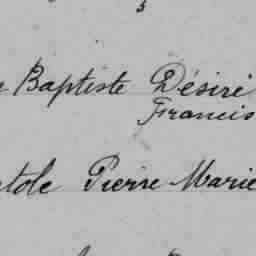 Baptiste Désiré
Francis
Pierre Marie